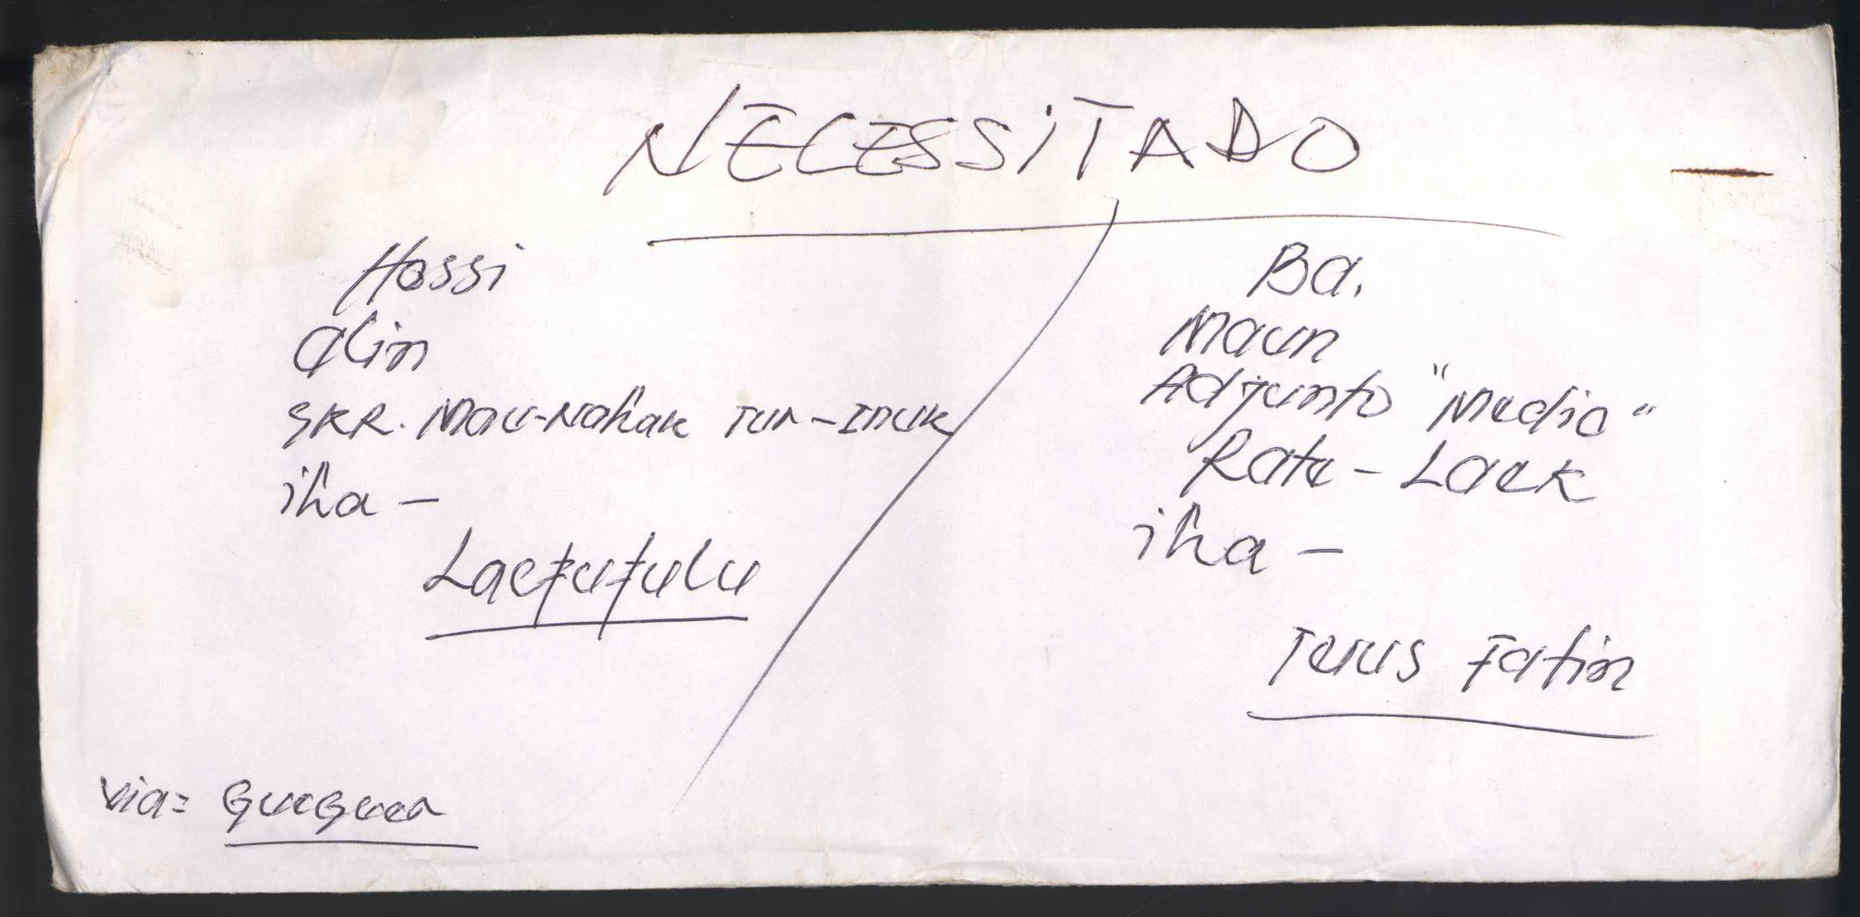 NECESSITADO
Hossi
Alin
SKR. Mau-Nahak Tur-Inuk
iha -
Laefufulu
Ba.
Maun
Adjunto "Media"
Rate-Laek
iha -
Turus Fatin
via=